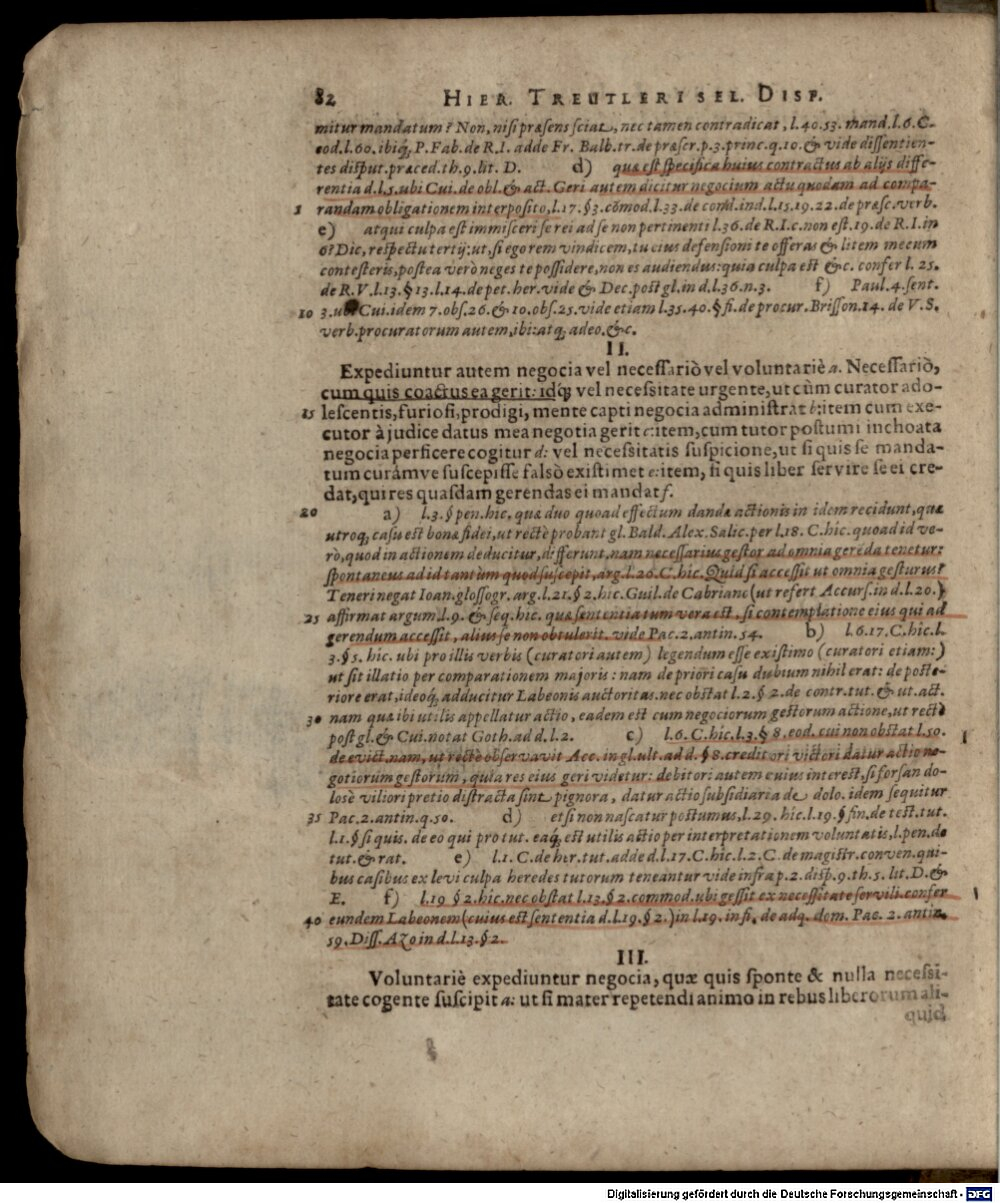 82 HIER. TREUTLERI SEL. DISP.
mitur mandatum? Non, nisi præsens sciat, nec tamen contradicat, l.40.53. mand.l.6.C.
eod.l.60.ibiq́, P.Fab.de R.I. adde Fr. Balb.tr.de præscr.p.3.princ.q.10.& vide dissentien-
tes disput.præced.th.9.lit. D. d) quæ est specifica huius contractus ab alijs diffe-
rentia d.l.5.ubi Cui.de obl.& act. Geri autem dicitur negocium actu quodam ad compa-
5 randam obligationem interposito, l.17.§3.cōmod.l.33.de cond.ind.l.15.19.22.de præsc.verb.
e) atqui culpa est immisceri se rei ad se non pertinenti l.36.de R.I.c.non est.19.de R.I.in
6? Dic, respectu tertij: ut, si ego rem vindicem, tu eius defensioni te offeras & litem mecum
contesteris, postea verò neges te possidere, non es audiendus: quia culpa est &c. confer l. 25.
de R.V.l.13.§13.l.14.de pet. her.vide & Dec.post gl.in d.l.36.n.3. f) Paul.4.sent.
10 3.ubi Cui.idem 7.obs.26.& 10.obs.25.vide etiam l.35.40.§fi.de procur.Brisson.14. de V.S.
verb.procuratorum autem, ibi: atq́, adeo.&c.
II.
Expediuntur autem negocia vel necessariò vel voluntariè a. Necessariò,
cum quis coactus ea gerit: idq́; vel necessitate urgente, ut cùm curator ado-
15 lescentis, furiosi, prodigi, mente capti negocia administrat b: item cum exe-
cutor à judice datus mea negotia gerit c: item, cum tutor postumi inchoata
negocia perficere cogitur d: vel necessitatis suspicione, ut si quis se manda-
tum curámve suscepisse falsò existimet e: item, si quis liber servire se ei cre-
dat, qui res quasdam gerendas ei mandat f.
20 a) l.3.§pen.hic. quæ duo quoad effectum dandæ actionis in idem recidunt, quæ
utroq́, casu est bonæ fidei, ut rectè probant gl. Bald. Alex. Salic. per l.18. C.hic. quoad id ve-
rò, quod in actionem deducitur, differunt, nam necessarius gestor ad omnia gerēda tenetur:
spontaneus ad id tantùm quod suscepit, arg.l.20.C.hic. Quid si accessit ut omnia gesturus?
Teneri negat Ioan.glossogr. arg.l.21.§2.hic. Guil.de Cabriano (ut refert Accurs.in d.l.20.)
25 affirmat argum.l.9. & seq.hic. quæ sententia tum vera est, si contemplatione eius qui ad
gerendum accessit, alius se non obtulerit. vide Pac.2.antin.54. b) l.6.17.C.hic.l.
3.§5. hic. ubi pro illis verbis (curatori autem) legendum esse existimo (curatori etiam:)
ut sit illatio per comparationem majoris: nam de priori casu dubium nihil erat: de poste-
riore erat, ideoq́, adducitur Labeonis auctoritas. nec obstat l.2.§2.de contr.tut.& ut.act.
30 nam quæ ibi utilis appellatur actio, eadem est cum negociorum gestorum actione, ut rectè
post gl.& Cui.notat Goth.ad d.l.2. c) l.6.C.hic.l.3.§8.eod.cui non obstat l.50.
de evict.nam, ut rectè observavit Acc.in gl.ult.ad d.§8.creditori victori datur actio ne-
gotiorum gestorum, quia res eius geri videtur: debitori autem cuius interest, si forsan do-
losè viliori pretio distracta sint pignora, datur actio subsidiaria de dolo. idem sequitur
35 Pac.2.antin.q.50. d) etsi non nascatur postumus, l.29. hic.l.19.§fin.de test.tut.
l.1.§si quis.de eo qui pro tut. eaq́, est utilis actio per interpretationem voluntatis, l.pen.de
tut.& rat. e) l.1. C.de her.tut.adde d.l.17.C.hic.l.2.C.de magistr.conven.qui-
bus casibus ex levi culpa heredes tutorum teneantur vide infra p.2.disp.9.th.5.lit.D.&
E. f) l.19 §2.hic.nec obstat l.13.§2.commod.ubi gessit ex necessitate servili.confer
40 eundem Labeonem (cuius est sententia d.l.19.§2.) in l.19.in fi. de adq. dom. Pac. 2. antin.
59. Diss. Azo in d.l.13.§2.
III.
Voluntariè expediuntur negocia, quæ quis sponte & nulla necessi-
tate cogente suscipit a: ut si mater repetendi animo in rebus liberorum ali-
quid
Digitalisierung gefördert durch die Deutsche Forschungsgemeinschaft - DFG